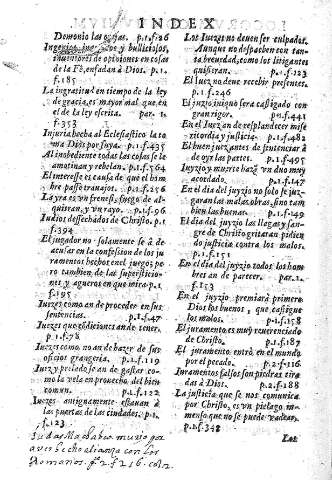 INDEX
Demonio las ovejas. p.1.f.26
Ingenios, inquietos y bulliciosos,
inventores de opiniones en cosas
de la Fè, enfadan à Dios. 1.
f.185
La ingratitud en tiempo de la ley
de gracia, es mayor mal que en
el de la ley escrita. p.1.
f.353
Injuria hecha al Eclesiastico la to
ma Dios por suya. p.1.f.435
Al inobediente todas las cosas se le
amotinan y rebelan. p.1.f.564
El interesse es causa de que el hom
bre passe trabajos. p.1.f.256
La yra es vn frenesi, fuego de al-
quitran, y vn rayo. p.1.f.96
Iudios desechados de Christo. p.1
f.394
El jugador no solamente se à de
acusar en la confession de los ju
ramentos hechos en el juego, pe
ro tambien de las supersticio-
nes, y agueros en que mirò. p.1
f.195
Iuezes como an de proceder en sus
sentencias. p.1.f.47
Iuezes que condiciones an de tener.
p.1.f.78
Iuezes como no an de hazer de sus
oficios grangeria. p.1.f.119
Iuez y prelado se an de gastar co-
mo la vela en provecho del bien
comun. p.1.f.122
Iuezes antiguamente estauan à
las puertas de las ciudades. p.1.
f.123
Judas Machabeo
aver hecho alianza con los
Romanos. p.2.f.216. col.2.
Los Iuezes no deven ser culpados.
Aunque no despachen con tan
ta brevedad, como los litigantes
quisieran. p.1.f.123
El Iuez no deve recebir presentes.
p.1.f.246
El juez iniquo sera castigado con
gran rigor. p.1.f.441
En el Iuez an de resplandecer mise
ricordia y justicia. p.1.f.482
El buen juez antes de sentenciar à
de oyr las partes. p.1.f.495
Iuyzio y muerte hazẽ vn dño muy
acordado. p.1.f.147
En el dia del juyzio no solo se juz-
garan las malas obras, sino tam
bien las buenas. p.1.f.149
El dia del juyzio las llagas y san-
gre de Christo gritaran pidien
do justicia contra los malos.
p.1.f.151
En el dia del juyzio todos los hom
bres an de parecer. par.1.
f.153
En el juyzio premiarà primero
Dios los buenos, que castigue
los malos. p.1.f.158
El juramento es muy reverenciado
de Christo. p.1.f.187
El juramento entrò en el mundo
por el pecado. p.2.f.116.
Iuramentos falsos son piedras tira
das à Dios. p.2.f.188
La justicia que se nos comunica
por Christo, es vn pielago in-
menso que no se puede vadear.
p.1.f.348